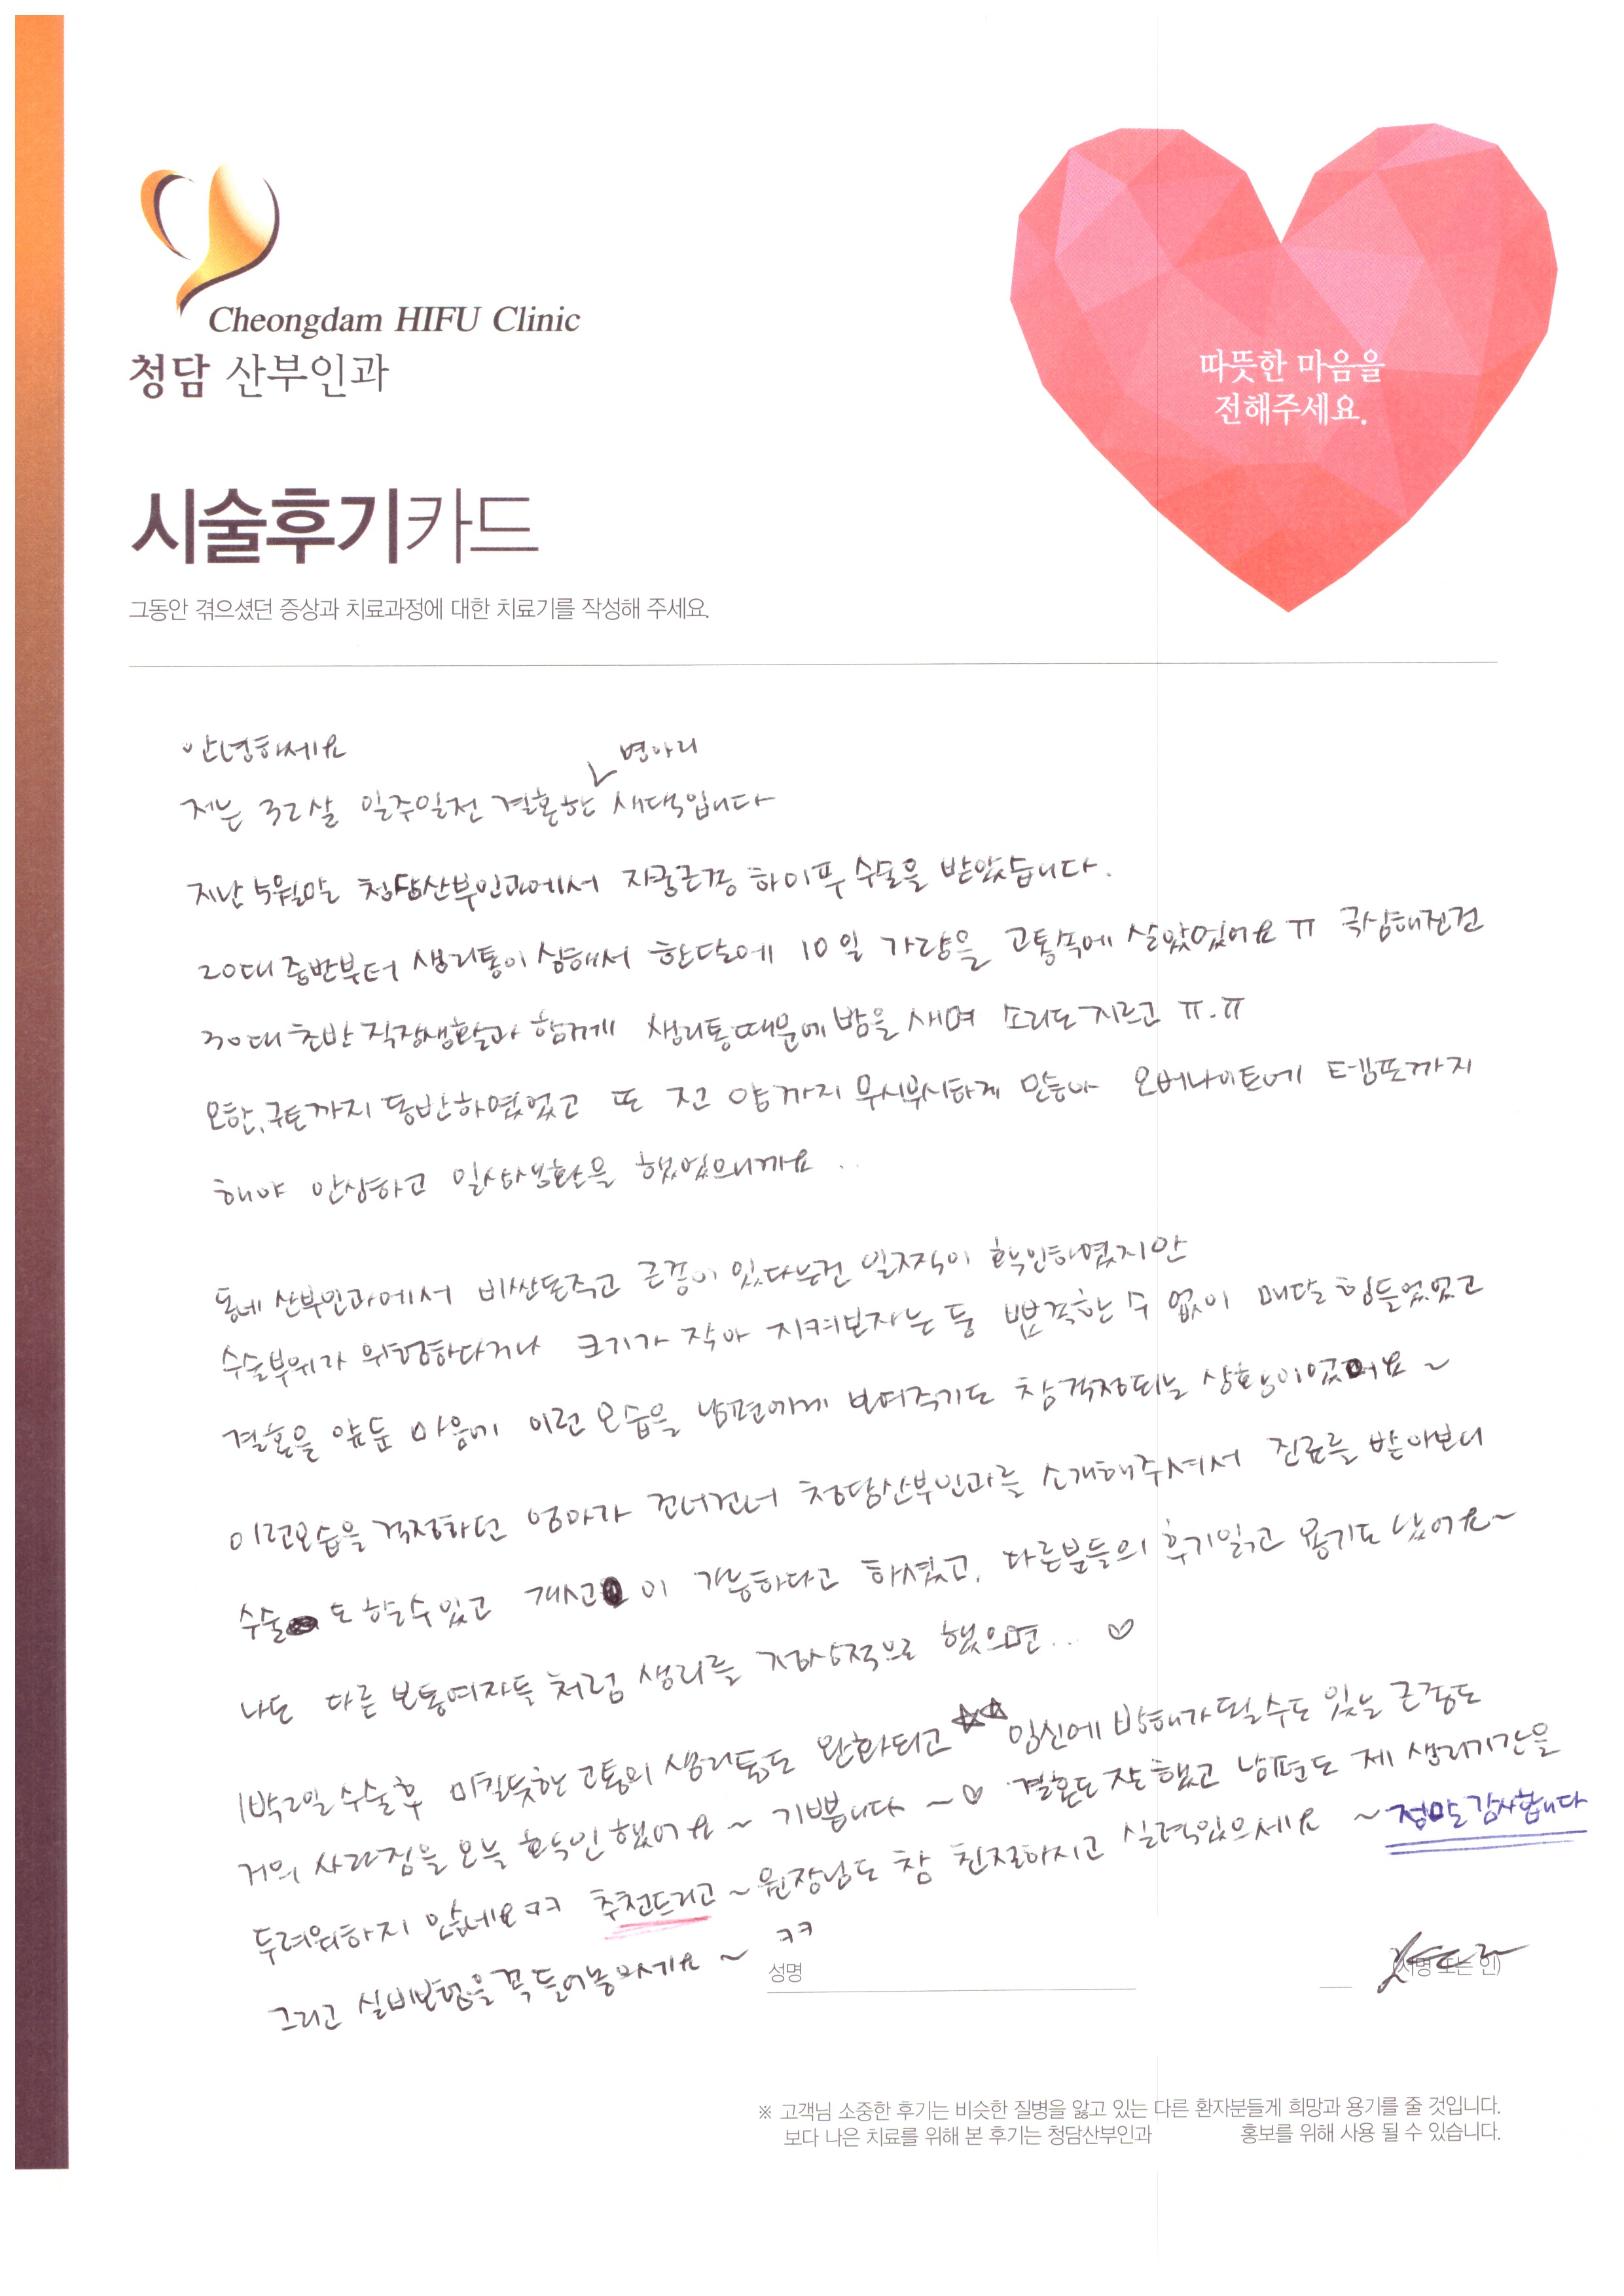 Cheongdam HIFU Clinic
청담 산부인과
따뜻한 마음을
전해주세요.
시술후기카드
그동안 겪으셨던 증상과 치료과정에 대한 치료기를 작성해 주세요.
안녕하세요
병아리
저는 32살 일주일전 결혼한 새댁입니다
지난 5월말 청담산부인과에서 자궁근종 하이푸 수술을 받았습니다.
20대 중반부터 생리통이 심해서 한달에 10일 가량을 고통속에 살았었어요ㅠ 극심해진건
30대 초반 직장생활과 함께 생리통때문에 밤을 새며 소리도 지르고 ㅠ.ㅠ
오한, 구토까지 동반하였었고 또 전 양까지 무시무시하게 많아 오버나이트에 템포까지
해야 안심하고 일상생활을 했었으니까요 ..
동네 산부인과에서 비싼돈주고 근종이 있다는건 일찌기 확인하였지만
수술부위가 위험하다거나 크기가 작아 지켜보자는 둥 뾰족한 수 없이 매달 힘들었었고
결혼을 앞둔 마음에 이런 모습을 남편에게 보여주기도 참 걱정되는 상황이었어요 ~
이런모습을 걱정하던 엄마가 건너건너 청담산부인과를 소개해주셔서 진료를 받아보니
수술도 할수있고 개선이 가능하다고 하셨고, 다른분들의 후기읽고 용기도 났어요~
나도 다른 보통여자들 처럼 생리를 정상적으로 했으면... ♡
1박2일 수술후 미칠듯한 고통의 생리통도 완화되고 ☆☆ 임신에 방해가 될수도 있는 근종도
거의 사라짐을 오늘 확인 했어요~ 기쁩니다 ~♡ 결혼도 잘 했고 남편도 제 생리기간을
두려워하지 않네요ㅋㅋ 추천드리고 ~ 원장님도 참 친절하시고 실력있으세요 ~ 정말 감사합니다
그리고 실비보험을 꼭 들어놓으세요 ~ ㅋㅋ
성명
(서명 또는 인)
※ 고객님 소중한 후기는 비슷한 질병을 앓고 있는 다른 환자분들게 희망과 용기를 줄 것입니다.
보다 나은 치료를 위해 본 후기는 청담산부인과 홍보를 위해 사용 될 수 있습니다.